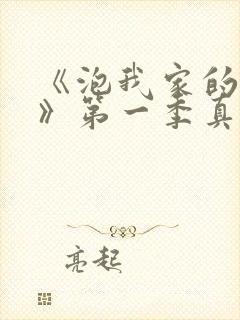 《泡我家的
》第一季真
亮起